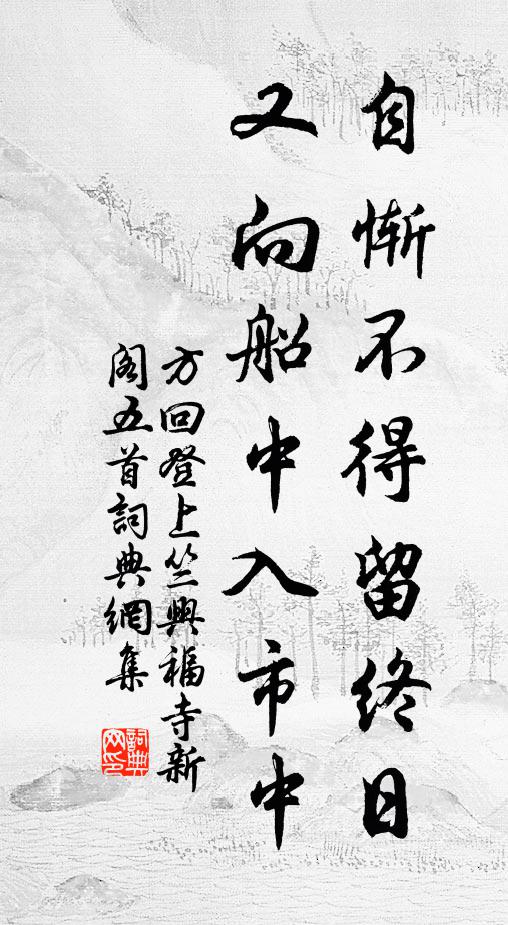 自慚不得留終日
又向船中入市中
方回登上竺興福寺新
閣五首詞典網集
詞典
网印